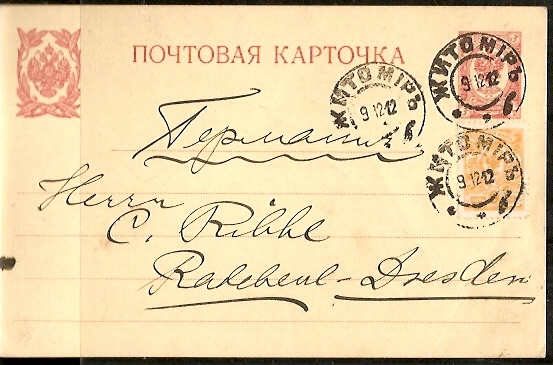 ПОЧТОВАЯ КАРТОЧКА
ЖИТОМІРЪ
9 12 12
б
ЖИТОМІРЪ
9 12 12
б
ЖИТОМІРЪ
9 12 12
б
Германия
Herrn
C. Ribbe
Radebeul-Dresden